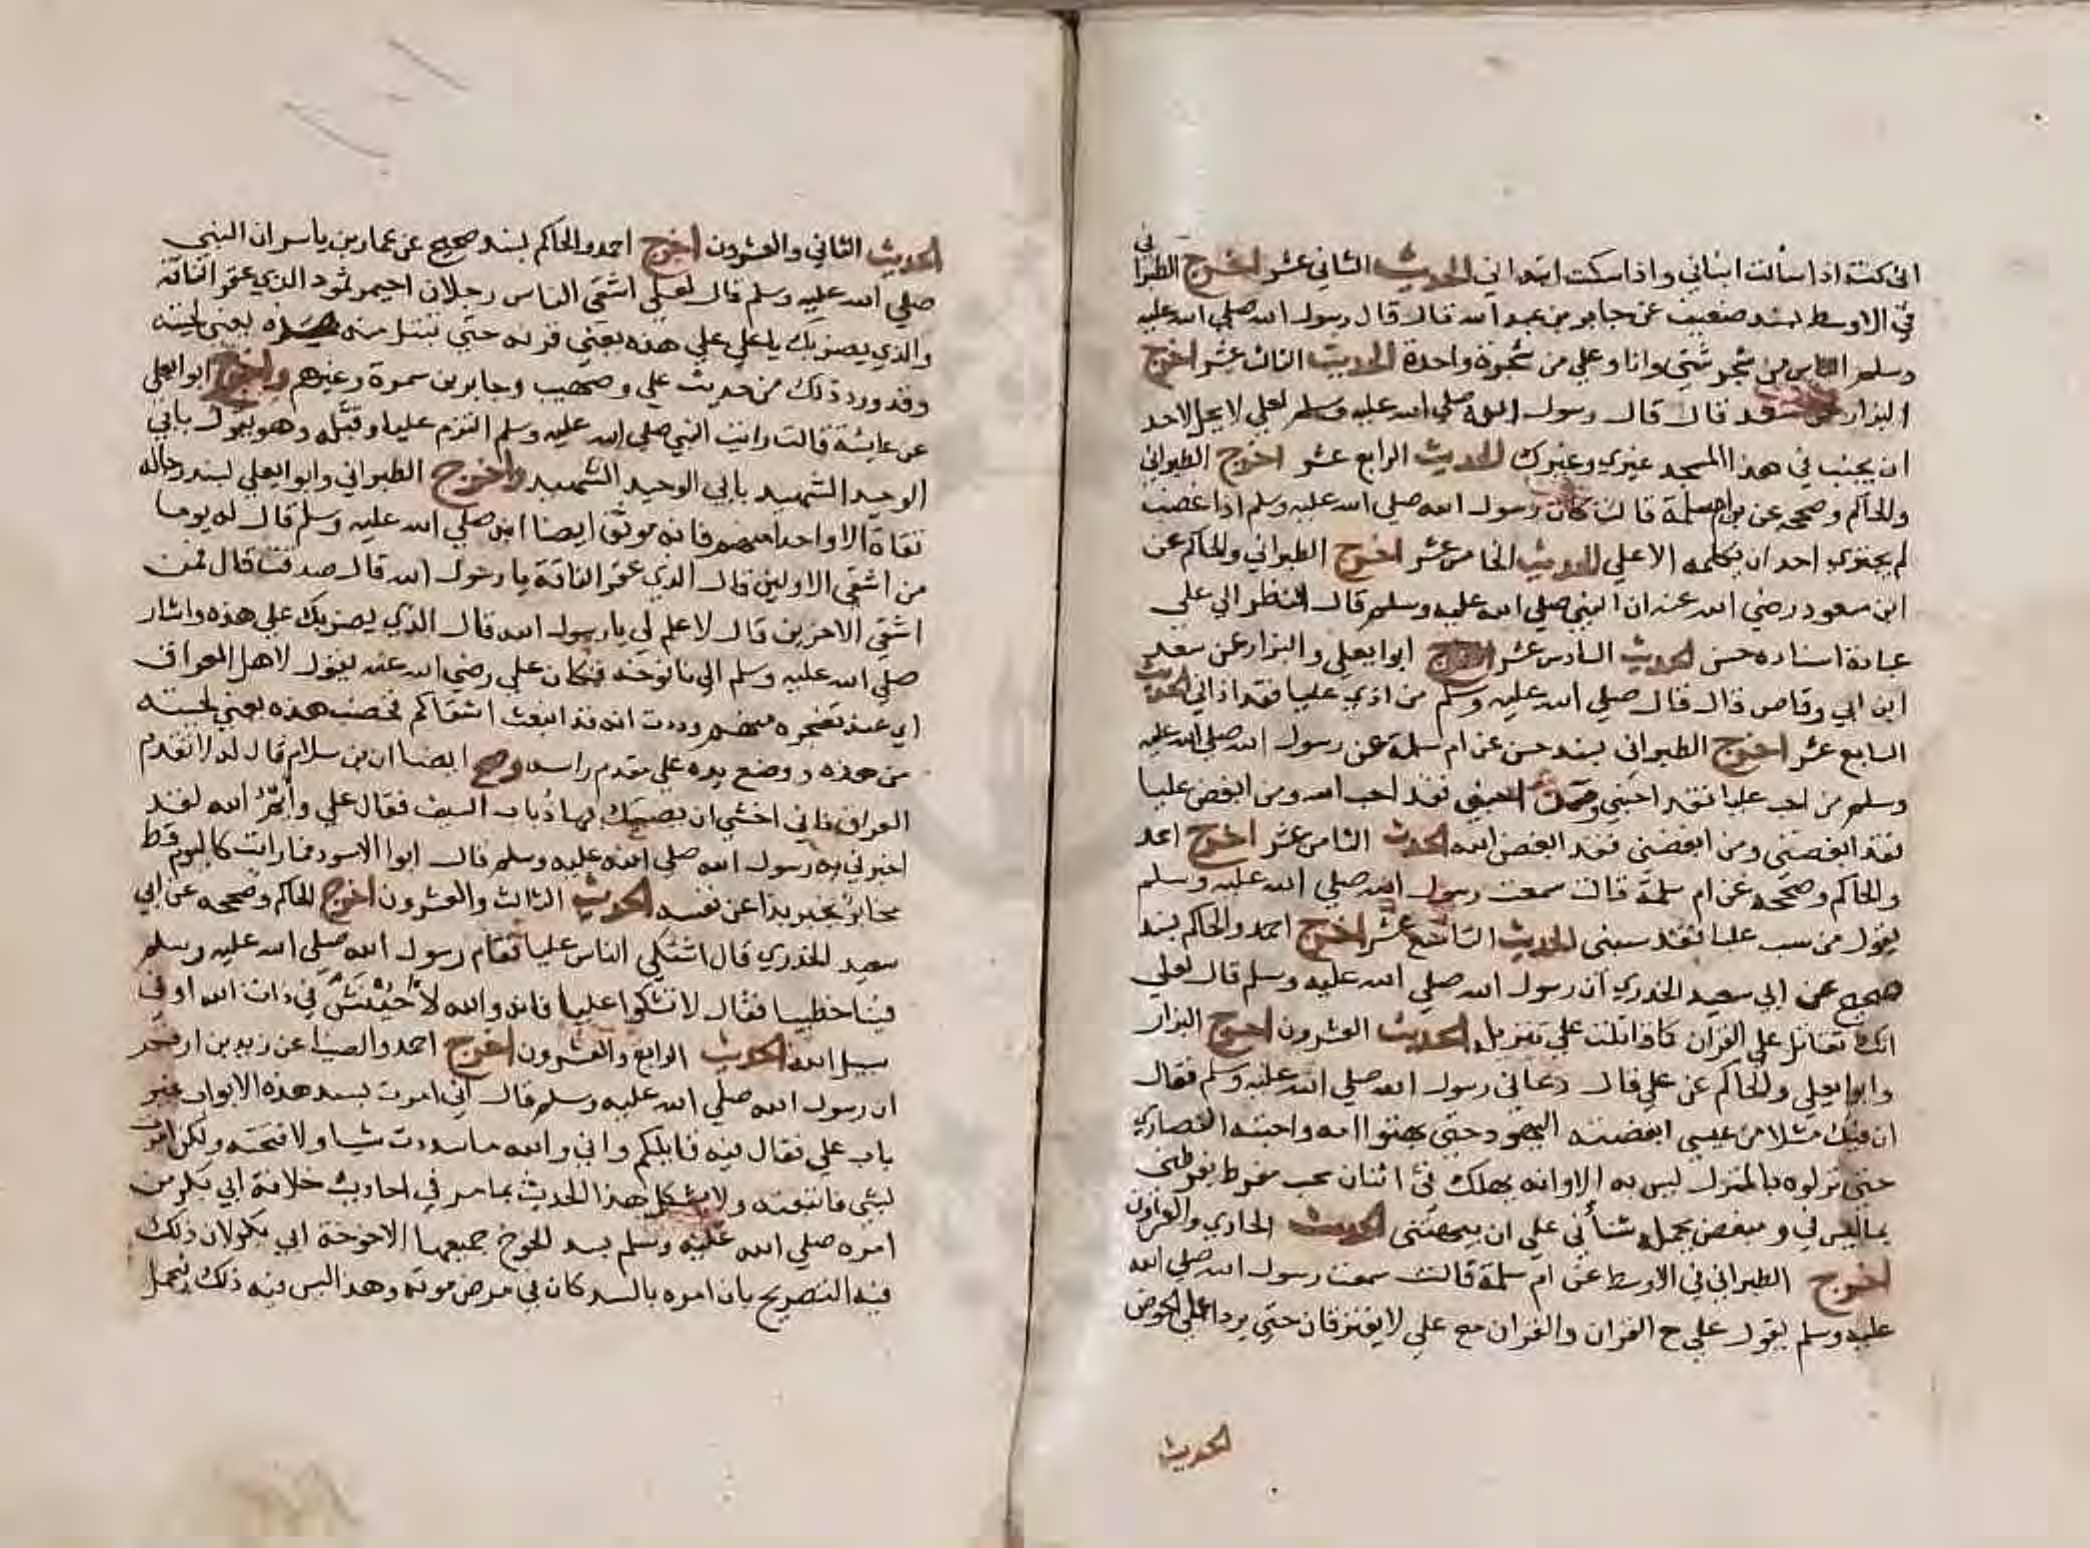 اني كنت اذا سألت ابناني واذا سكت ابتداني الحديث الثاني عشر اخرج الطبراني
في الاوسط بسند ضعيف عن جابر بن عبد الله قال قال رسول الله صلي الله عليه
وسلم الناس من شجر شتي وانا وعلي من شجرة واحدة الحديث الثالث عشر اخرج
البزار عن سعد قال قال رسول الله صلي الله عليه وسلم لعلي لا يحل لاحد
ان يجنب في هذا المسجد غيري وغيرك الحديث الرابع عشر اخرج الطبراني
والحاكم وصححه عن ام سلمة قالت كان رسول الله صلي الله عليه وسلم اذا غضب
لم يجتري احد ان يكلمه الا علي الحديث الخامس عشر اخرج الطبراني والحاكم عن
ابن مسعود رضي الله عنه ان النبي صلي الله عليه وسلم قال النظر الي علي
عبادة اسناده حسن الحديث السادس عشر اخرج ابوا يعلي والبزار عن سعد
ابن ابي وقاص قال قال صلي الله عليه وسلم من اذي عليا فقد اذاني الحديث
السابع عشر اخرج الطبراني بسند حسن عن ام سلمة عن رسول الله صلي الله عليه
وسلم من احب عليا فقد احبني ومن احبني فقد احب الله ومن ابغض عليا
فقد ابغضني ومن ابغضني فقد ابغض الله الحديث الثامن عشر اخرج احمد
والحاكم وصححه عن ام سلمة قالت سمعت رسول الله صلي الله عليه وسلم
يقول من سب عليا فقد سبني الحديث التاسع عشر اخرج احمد والحاكم بسند
صحيح عن ابي سعيد الخدري ان رسول الله صلي الله عليه وسلم قال لعلي
انك تقاتل علي القران كما قاتلت علي تنزيله الحديث العشرون اخرج البزار
وابوا يعلي والحاكم عن علي قال دعاني رسول الله صلي الله عليه وسلم فقال
ان فيك مثلا من عيسي ابغضته اليهود حتي بهتوا امه واحبته النصاري
حتي نزلوه بالمنزل ليس به الا وانه يهلك في اثنان محب مفرط يفرطني
بما ليس في ومبغض يحمله شنأني علي ان يبهتني الحديث الحادي والعشرون
اخرج الطبراني في الاوسط عن ام سلمة قالت سمعت رسول الله صلي الله
عليه وسلم يقول علي مع القران والقران مع علي لا يفترقان حتي يردا علي الحوض
الحديث
الحديث الثاني والعشرون اخرج احمد والحاكم بسند صحيح عن عمار بن ياسر ان النبي
صلي الله عليه وسلم قال لعلي اشقي الناس رجلان احيمر ثمود الذي عقر الناقة
والذي يضربك يا علي علي هذه يعني قرنه حتي تبتل منه هذه يعني لحيته
وقد ورد ذلك من حديث علي وصهيب وجابر بن سمرة وغيرهم واخرج ابوا يعلي
عن عايشة قالت رايت النبي صلي الله عليه وسلم التزم عليا وقبّله وهو يقول بابي
الوحيد الشهيد بابي الوحيد الشهيد واخرج الطبراني وابوا يعلي بسند رجاله
ثقاة الا واحدا منهم فانه موثق ايضا انه صلي الله عليه وسلم قال له يوما
من اشقي الاولين قال الذي عقر الناقة يا رسول الله قال صدقت قال فمن
اشقي الاخرين قال لا علم لي يا رسول الله قال الذي يضربك علي هذه واشار
صلي الله عليه وسلم الي نافوخه فكان علي رضي الله عنه يقول لاهل العراق
اي عند تضجره منهم وددت انه قد انبعث اشقاكم فخضب هذه يعني لحيته
من هذه ووضع يده علي مقدم راسه وصح ايضا ان بن سلام قال له لا تقدم
العراق فاني اخشي ان يصيبك بها ذباب السيف فقال علي وأيم الله لقد
اخبرني به رسول الله صلي الله عليه وسلم قال ابوا الاسود فما رايت كاليوم قط
محاربا يخبر بذا عن نفسه الحديث الثالث والعشرون اخرج الحاكم وصححه عن ابي
سعيد الخدري قال اشتكي الناس عليا فقام رسول الله صلي الله عليه وسلم
فينا خطيبا فقال لا تشكوا عليا فانه والله لأخيشن في ذات الله او في
سبيل الله الحديث الرابع والعشرون اخرج احمد والضيا عن زيد بن ارقم
ان رسول الله صلي الله عليه وسلم قال اني امرت بسد هذه الابواب غير
باب علي فقال فيه قايلكم واني والله ما سددت شيا ولا فتحته ولكن امرت
بشي فاتبعته ولا يشكل هذا الحديث بما مر في احاديث خلافة ابي بكر من
امره صلي الله عليه وسلم بسد الخوخ جميعها الا خوخة ابي بكر لان ذلك
فيه التصريح بان امره بالسد كان في مرض موته وهذا ليس فيه ذلك فيحمل